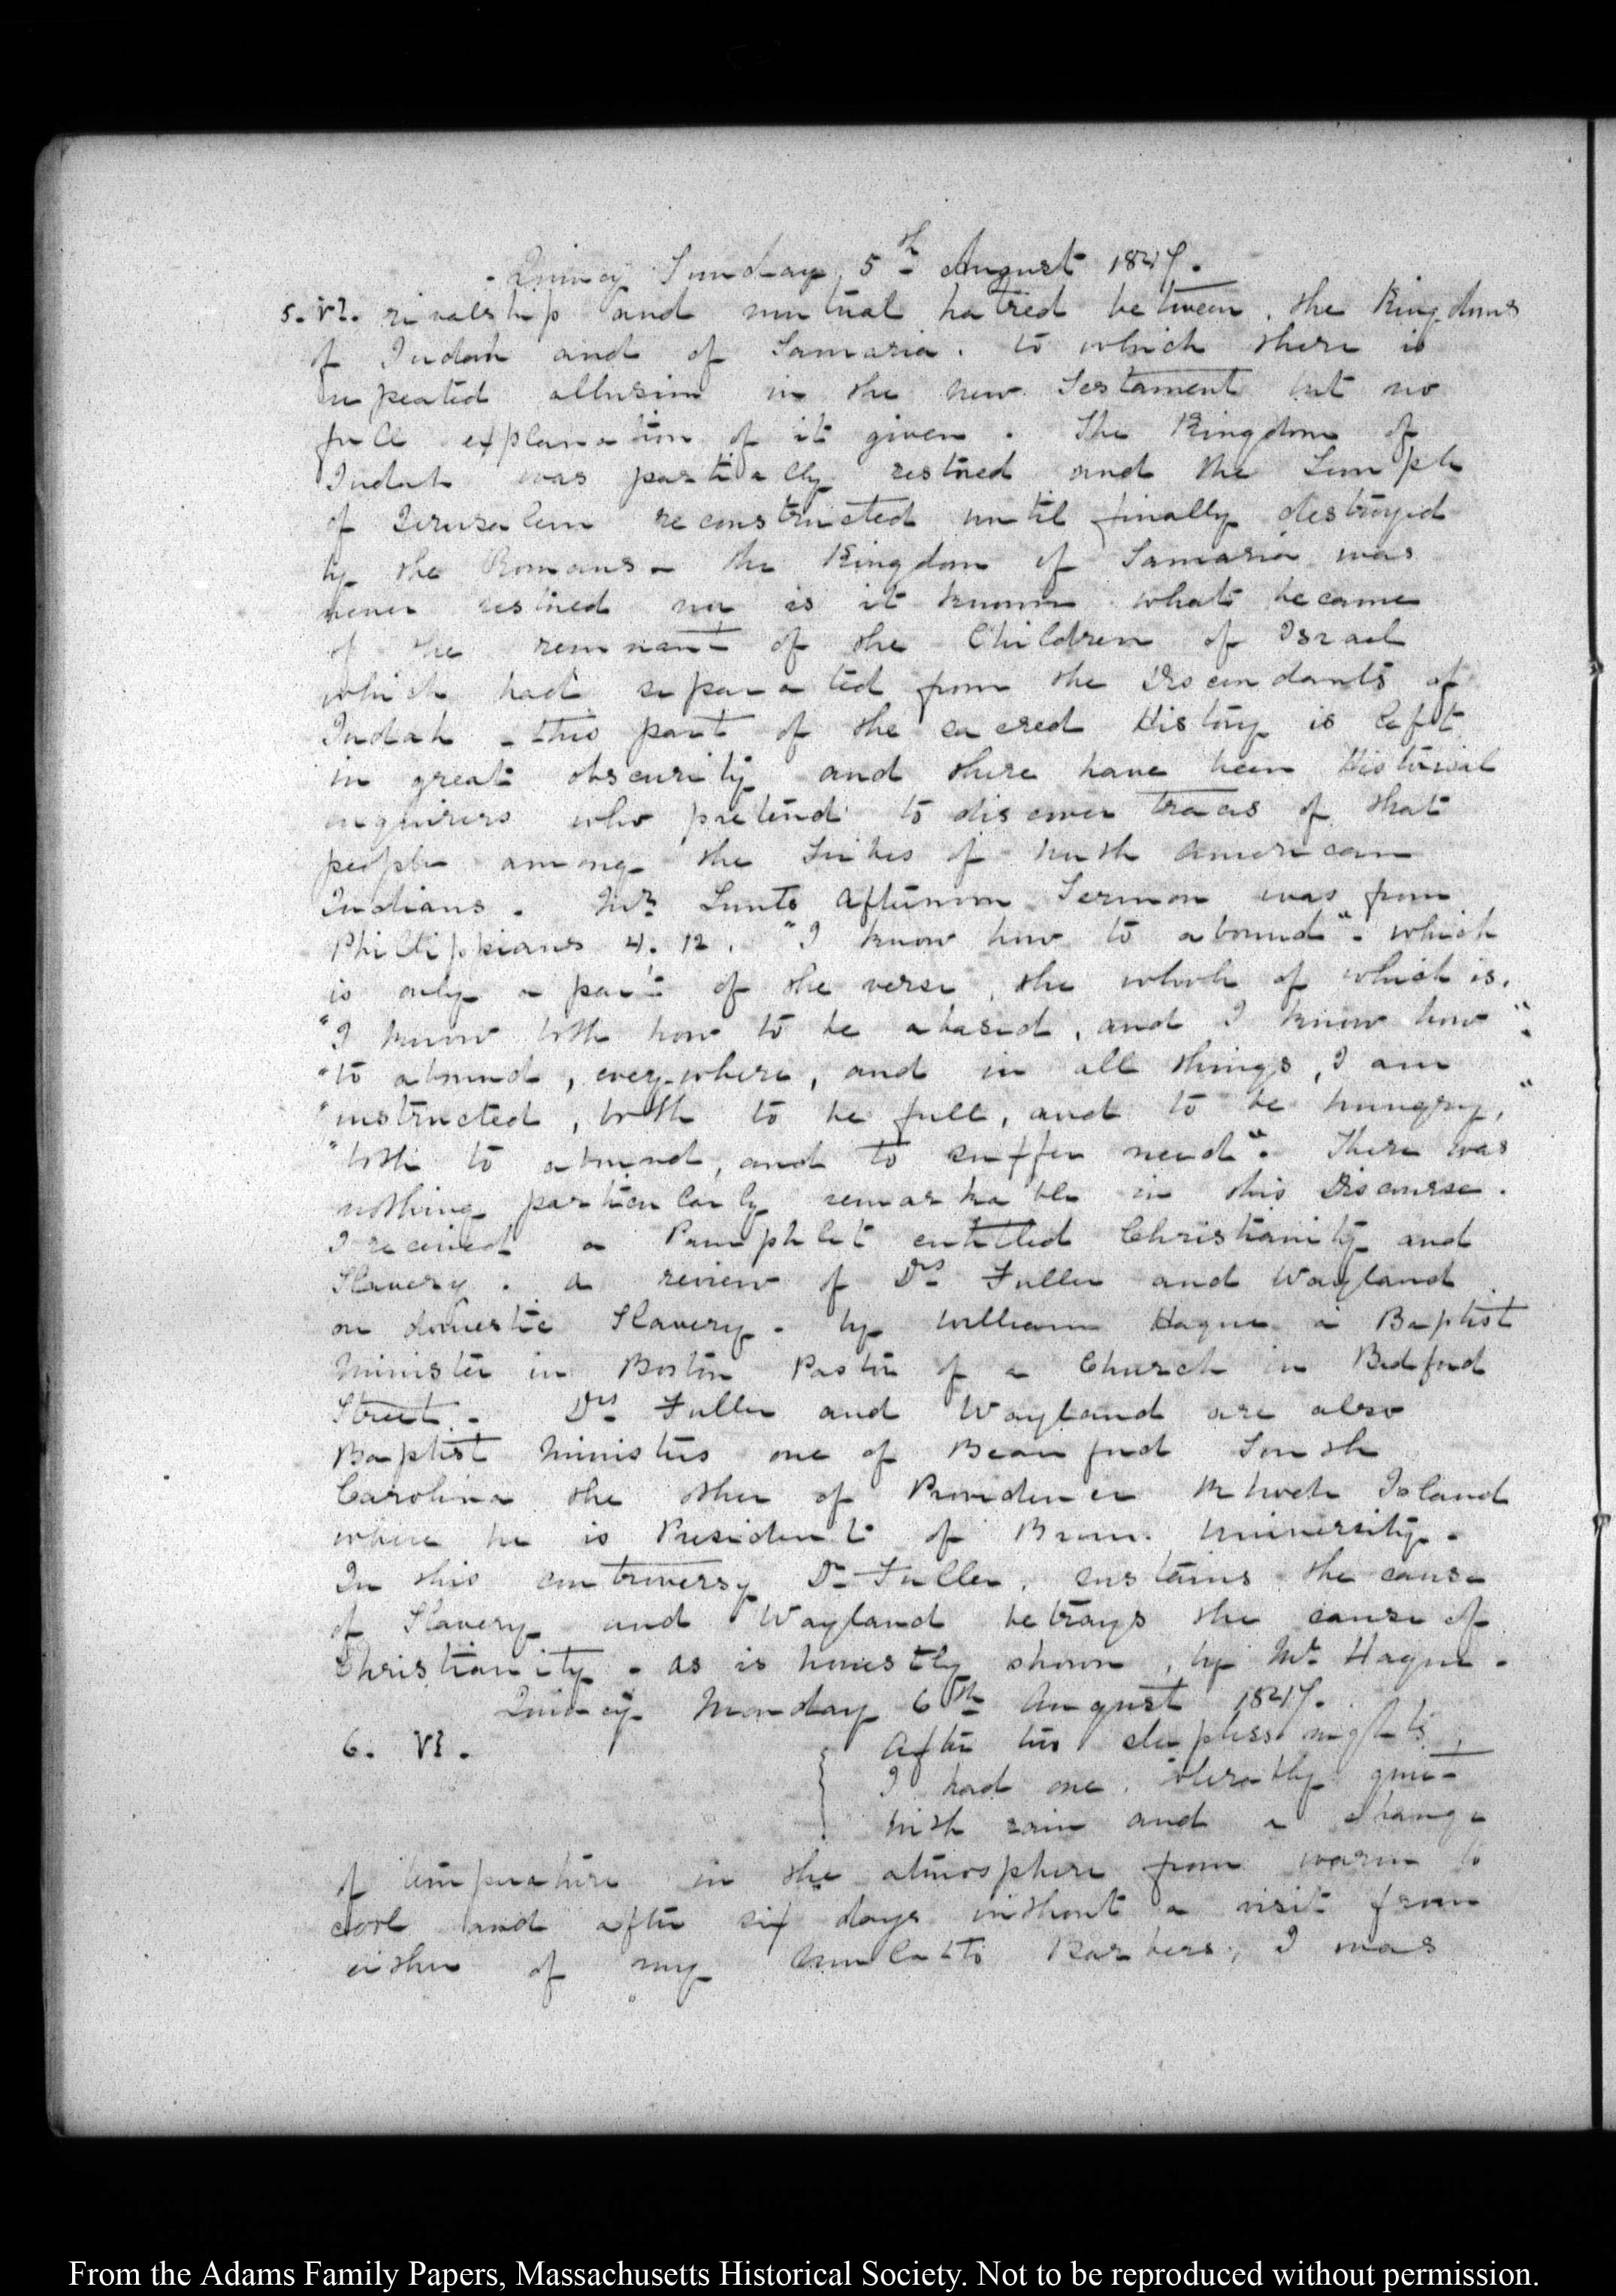 Quincy Sunday 5th August 1847.
5. VI. rivalship and mutual hatred between, the Kingdoms
of Judah and of Samaria. to which there is
repeated allusion in the new Testament but no
full explanation of it given. The Kingdom of
Judah was partially restored and the Temple
of Jerusalem reconstructed until finally destroyed
by the Romans - the Kingdom of Samaria was
never restored nor is it known what became
of the remnant of the Children of Israel
which had separated from the Descendants of
Judah - this part of the sacred History is left
in great obscurity and there have been Historical
enquirers who pretend to discover traces of that
people among the tribes of North American
Indians. Mr Lunts afternoon Sermon was from
Philippians 4. 12. "I know how to abound". which
is only a part of the verse, the whole of which is.
"I know both how to be abased, and I know how "
"to abound, every-where, and in all things, I am
"instructed, both to be full, and to be hungry, "
"both to abound, and to suffer need". There was
nothing particularly remarkable in this Discourse.
I received a Pamphlet entitled Christianity and
Slavery. a review of Drs Fuller and Wayland
on domestic Slavery - by William Hague a Baptist
Minister in Boston Pastor of a Church in Bedford
Street - Drs Fuller and Wayland are also
Baptist Ministers one of Beauford South
Carolina the other of Providence Rhode Island
where he is President of Brown University -
In this controversy Dr Fuller, sustains the cause
of Slavery and Wayland betrays the cause of
Christianity - as is honestly shown, by Mr Hague -
Quincy Monday 6th August 1847.
6. VI. After two sleepless nights,
I had one tolerably quiet
with rain and a change
of temperature in the atmosphere from warm to
cool and after six days without a visit from
either of my mulatto Barbers, I was
From the Adams Family Papers, Massachusetts Historical Society. Not to be reproduced without permission.